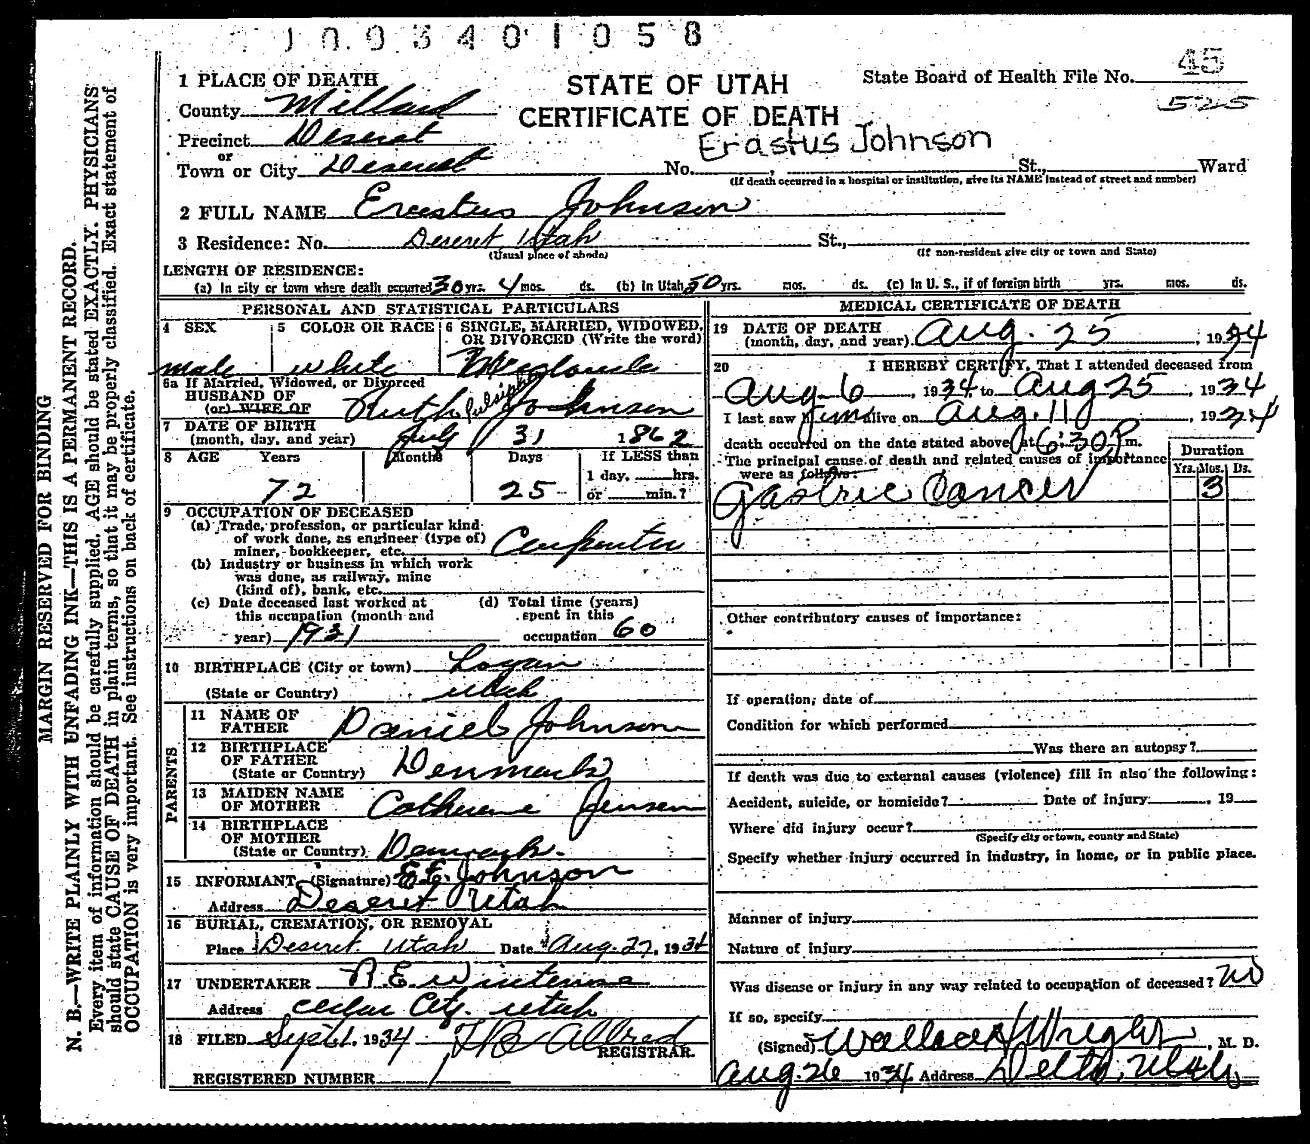 1003401058
1 PLACE OF DEATH
STATE OF UTAH
CERTIFICATE OF DEATH
State Board of Health File No. 45
525
County Millard
Precinct Deseret
or
Town or City Deseret
Erastus Johnson
No. , St., Ward
(If death occurred in a hospital or institution, give its NAME instead of street and number)
2 FULL NAME Erastus Johnson
3 Residence: No. Deseret, Utah St.,
(Usual place of abode) (If non-resident give city or town and State)
LENGTH OF RESIDENCE:
(a) In city or town where death occurred 30 yrs. 4 mos. ds. (b) In Utah 50 yrs. mos. ds. (c) In U. S., if of foreign birth yrs. mos. ds.
PERSONAL AND STATISTICAL PARTICULARS
4 SEX 5 COLOR OR RACE 6 SINGLE, MARRIED, WIDOWED,
OR DIVORCED (Write the word)
male white
6a If Married, Widowed, or Divorced
HUSBAND OF
(or) WIFE OF Ruth Johnson
7 DATE OF BIRTH
(month, day, and year) July 31 1862
8 AGE Years Months Days If LESS than
1 day, hrs.
72 25 or min.?
9 OCCUPATION OF DECEASED
(a) Trade, profession, or particular kind
of work done, as engineer (type of)
miner, bookkeeper, etc. Carpenter
(b) Industry or business in which work
was done, as railway, mine
(kind of), bank, etc.
(c) Date deceased last worked at (d) Total time (years)
this occupation (month and spent in this
year) 1931 occupation 60
10 BIRTHPLACE (City or town) Logan
(State or Country) Utah
PARENTS
11 NAME OF
FATHER Daniel Johnson
12 BIRTHPLACE
OF FATHER
(State or Country) Denmark
13 MAIDEN NAME
OF MOTHER Catherine Jensen
14 BIRTHPLACE
OF MOTHER
(State or Country) Denmark.
15 INFORMANT (Signature) E E Johnson
Address Deseret Utah
16 BURIAL, CREMATION, OR REMOVAL
Place Deseret Utah Date Aug. 27, 1934
17 UNDERTAKER
Address Cedar City, Utah
18 FILED Sept 1, 1934 Allred
REGISTRAR.
REGISTERED NUMBER
MEDICAL CERTIFICATE OF DEATH
19 DATE OF DEATH
(month, day, and year) Aug. 25, 1934
20 I HEREBY CERTIFY, That I attended deceased from
Aug. 6, 1934, to Aug 25, 1934
I last saw him alive on Aug. 11, 1934
death occurred on the date stated above, at 6:30 P.m.
The principal cause of death and related causes of importance
were as follows:
Duration
Yrs. Mos. Ds.
Gastric Cancer 3
Other contributory causes of importance:
If operation, date of
Condition for which performed
Was there an autopsy?
If death was due to external causes (violence) fill in also the following:
Accident, suicide, or homicide? Date of injury , 19
Where did injury occur?
(Specify city or town, county and State)
Specify whether injury occurred in industry, in home, or in public place.
Manner of injury
Nature of injury
Was disease or injury in any way related to occupation of deceased? no
If so, specify
(Signed) Wallace Wright, M. D.
Aug. 26 1934 Address Delta, Utah
MARGIN RESERVED FOR BINDING
N. B.—WRITE PLAINLY WITH UNFADING INK—THIS IS A PERMANENT RECORD.
Every item of information should be carefully supplied. AGE should be stated EXACTLY. PHYSICIANS
should state CAUSE OF DEATH in plain terms, so that it may be properly classified. Exact statement of
OCCUPATION is very important. See instructions on back of certificate.